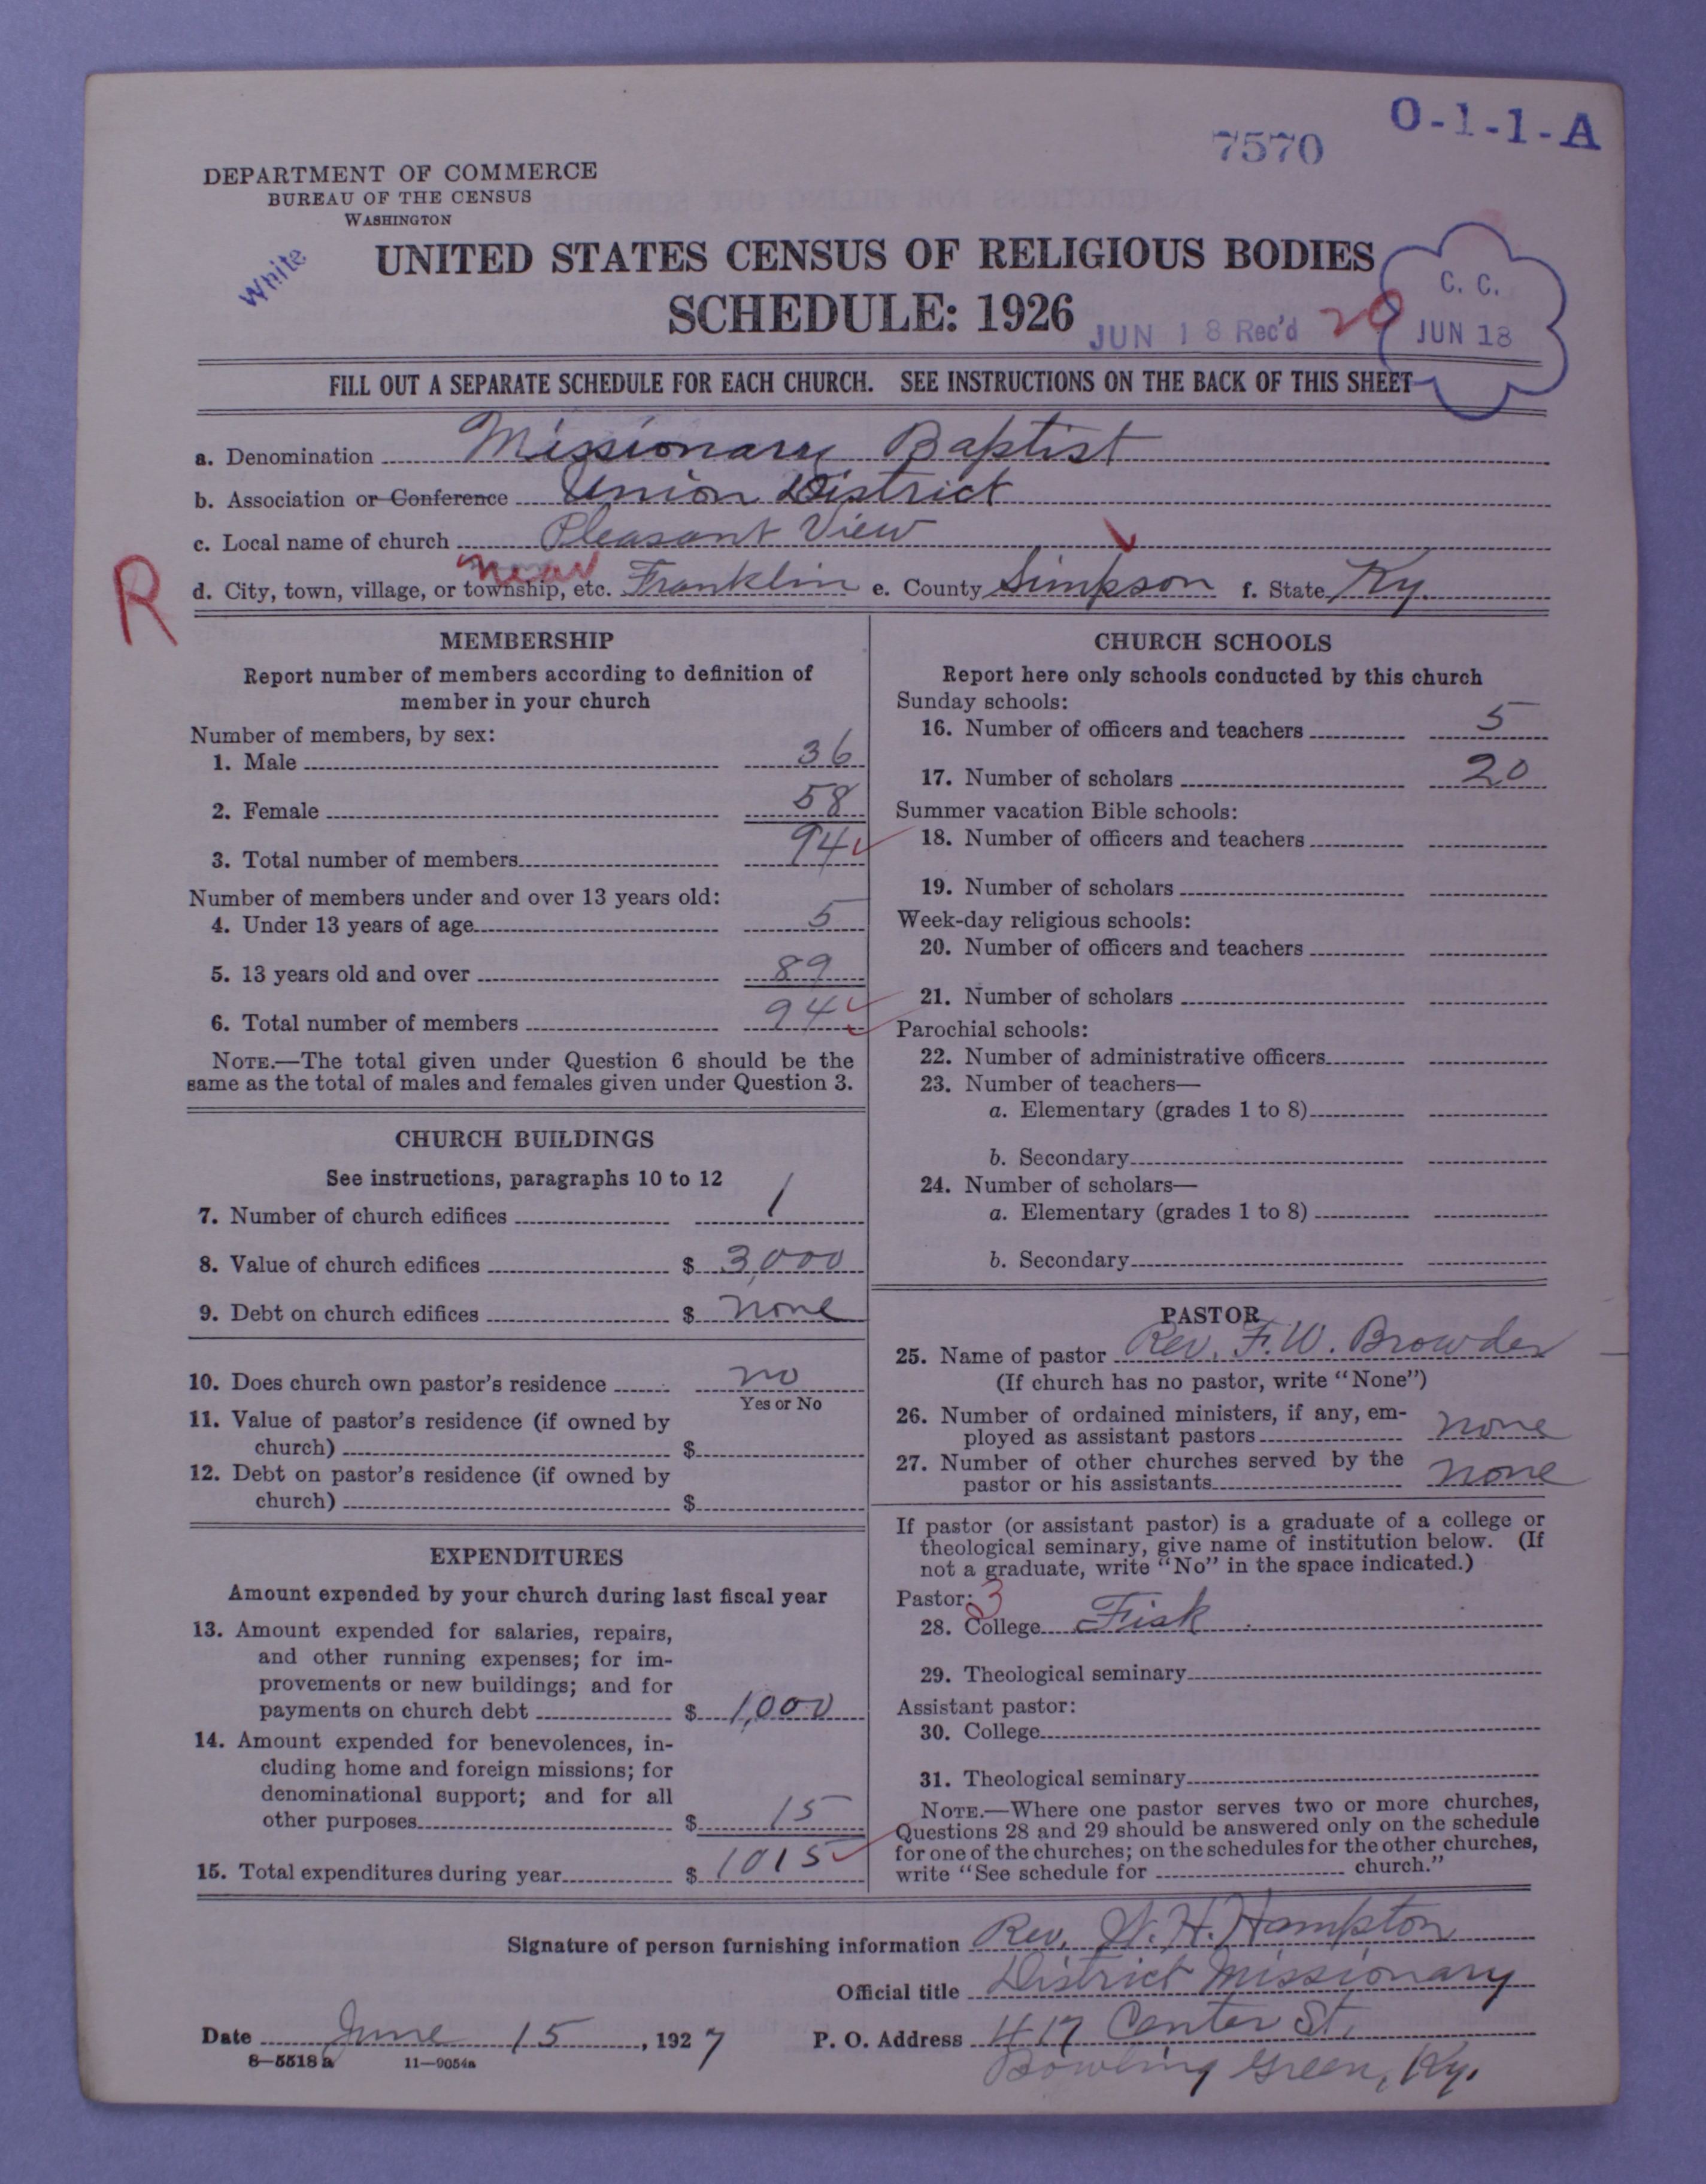 O-1-1-A
7570
DEPARTMENT OF COMMERCE
BUREAU OF THE CENSUS
WASHINGTON
White
UNITED STATES CENSUS OF RELIGIOUS BODIES
SCHEDULE: 1926
JUN 18 Rec'd
20
C. C.
JUN 18
FILL OUT A SEPARATE SCHEDULE FOR EACH CHURCH. SEE INSTRUCTIONS ON THE BACK OF THIS SHEET
a. Denomination Missionary Baptist
b. Association or Conference Union District
c. Local name of church Pleasant View
R
near
d. City, town, village, or township, etc. Franklin e. County Simpson f. State Ky.
MEMBERSHIP
Report number of members according to definition of
member in your church
Number of members, by sex:
1. Male 36
2. Female 58
3. Total number of members 94
Number of members under and over 13 years old:
4. Under 13 years of age 5
5. 13 years old and over 89
6. Total number of members 94
NOTE.—The total given under Question 6 should be the
same as the total of males and females given under Question 3.
CHURCH BUILDINGS
See instructions, paragraphs 10 to 12
7. Number of church edifices 1
8. Value of church edifices $ 3,000
9. Debt on church edifices $ none
10. Does church own pastor's residence no
Yes or No
11. Value of pastor's residence (if owned by
church) $
12. Debt on pastor's residence (if owned by
church) $
EXPENDITURES
Amount expended by your church during last fiscal year
13. Amount expended for salaries, repairs,
and other running expenses; for im-
provements or new buildings; and for
payments on church debt $ 1,000
14. Amount expended for benevolences, in-
cluding home and foreign missions; for
denominational support; and for all
other purposes $ 15
15. Total expenditures during year $ 1015
CHURCH SCHOOLS
Report here only schools conducted by this church
Sunday schools:
16. Number of officers and teachers 5
17. Number of scholars 20
Summer vacation Bible schools:
18. Number of officers and teachers
19. Number of scholars
Week-day religious schools:
20. Number of officers and teachers
21. Number of scholars
Parochial schools:
22. Number of administrative officers
23. Number of teachers—
a. Elementary (grades 1 to 8)
b. Secondary
24. Number of scholars—
a. Elementary (grades 1 to 8)
b. Secondary
PASTOR
25. Name of pastor Rev. F. W. Browder
(If church has no pastor, write "None")
26. Number of ordained ministers, if any, em-
ployed as assistant pastors none
27. Number of other churches served by the
pastor or his assistants none
If pastor (or assistant pastor) is a graduate of a college or
theological seminary, give name of institution below. (If
not a graduate, write "No" in the space indicated.)
Pastor: 3
28. College Fisk
29. Theological seminary
Assistant pastor:
30. College
31. Theological seminary
NOTE.—Where one pastor serves two or more churches,
Questions 28 and 29 should be answered only on the schedule
for one of the churches; on the schedules for the other churches,
write "See schedule for church."
Signature of person furnishing information Rev. W. H. Hampton
Official title District Missionary
Date June 15, 1927 P. O. Address 417 Center St.
Bowling Green, Ky.
8—5518 a 11—9054a